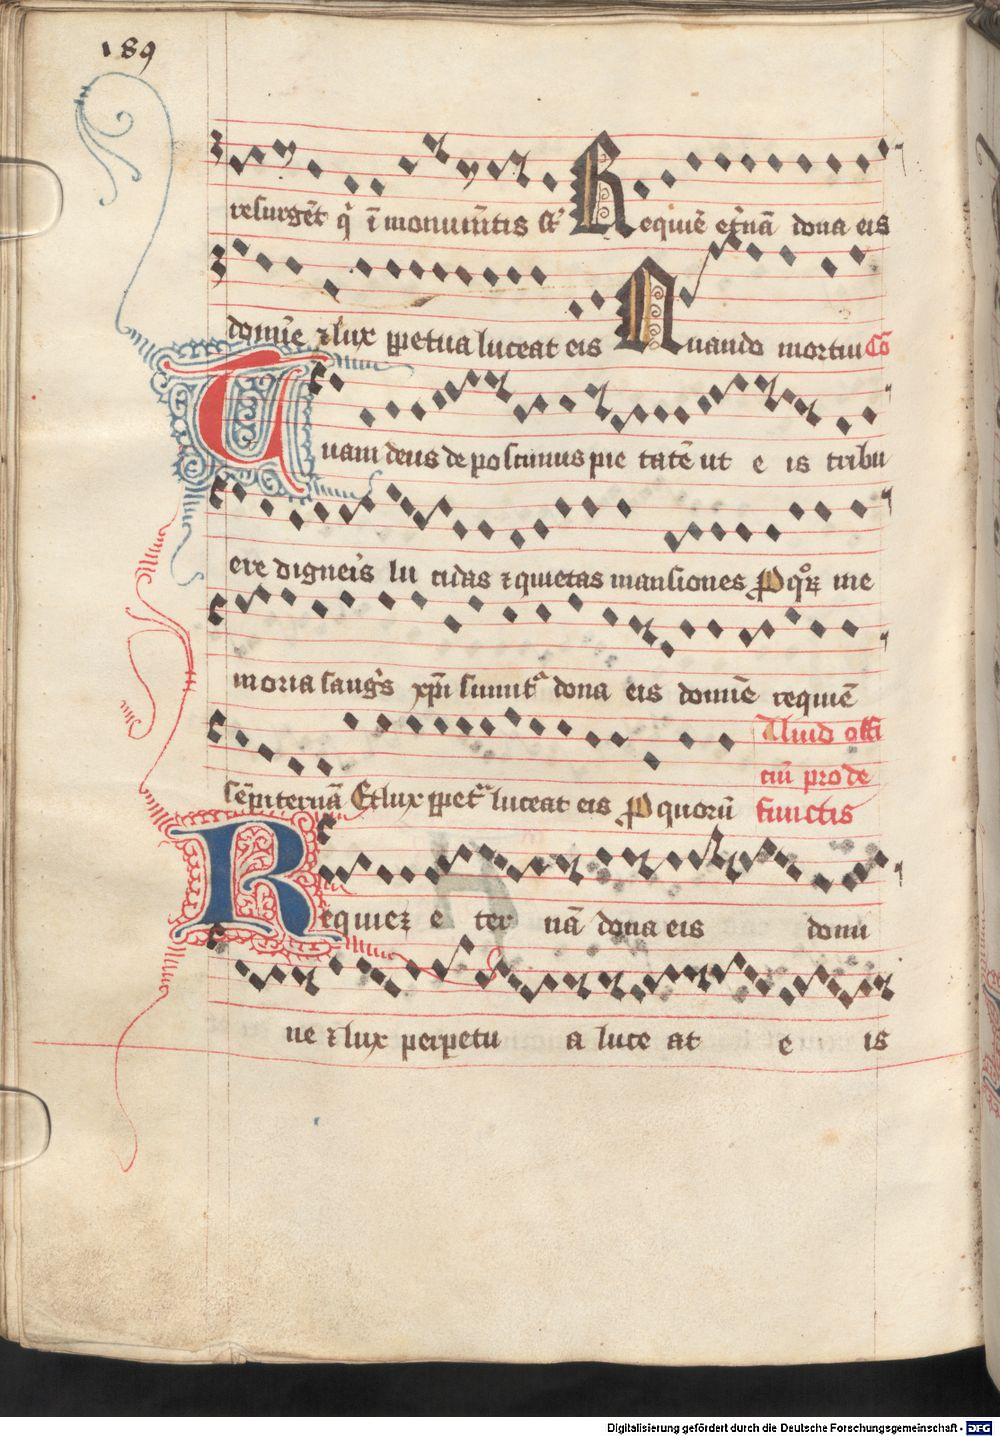 189
resurgēt q̄ ī monumētis sūt Requiē et̄nā dona eis
domīe ⁊ lux ꝑpetua luceat eis Quando mortui Cō
Tuam deus deposcimus pie tatē ut e is tribu
ere digneis lu cidas ⁊ quietas mansiones ꝓ quoꝝ me
moria sangͥs xp̄i sumitͬ dona eis domīe requiē
sēpiternā Et lux ꝑpetͣ luceat eis ꝓ quorū
Aliud offi
ciū pro de
functis
Requiez e ter nā dona eis domi
ne ⁊ lux perpetu a luce at e is
Digitalisierung gefördert durch die Deutsche Forschungsgemeinschaft - DFG